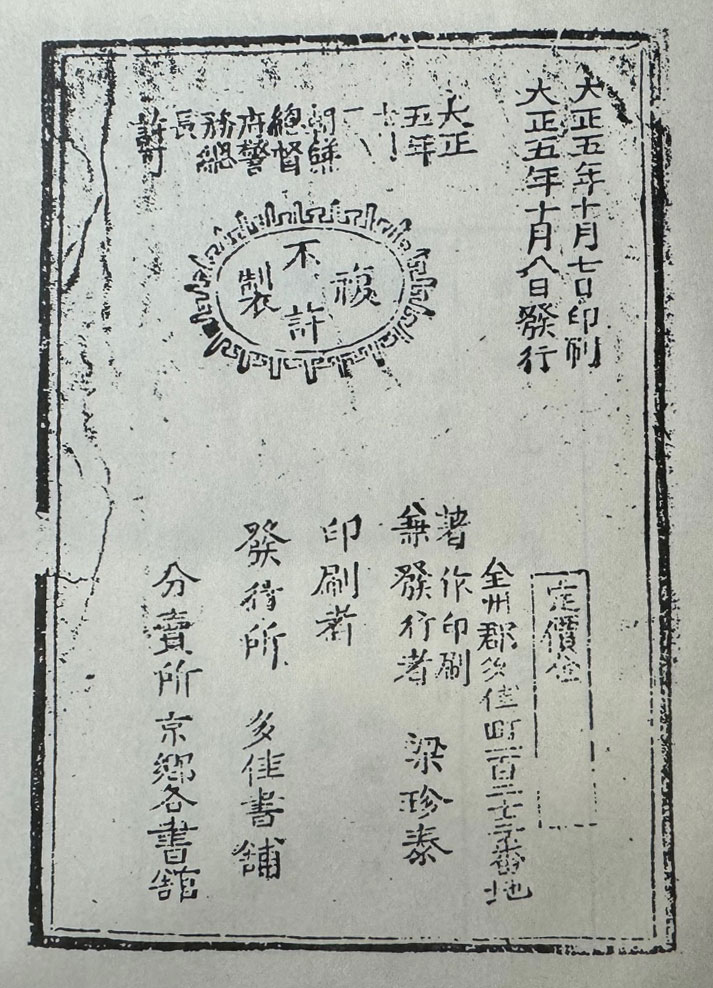 大正五年十月七日印刷
大正五年十月八日發行
大正
五年
十
八
朝鮮
總督
府警
務總
長
許可
不許
複製
定價金
全州郡多佳町一百二十三番地
著作印刷
兼發行者 梁珍泰
印刷者
發行所 多佳書鋪
分賣所 京鄉各書舘